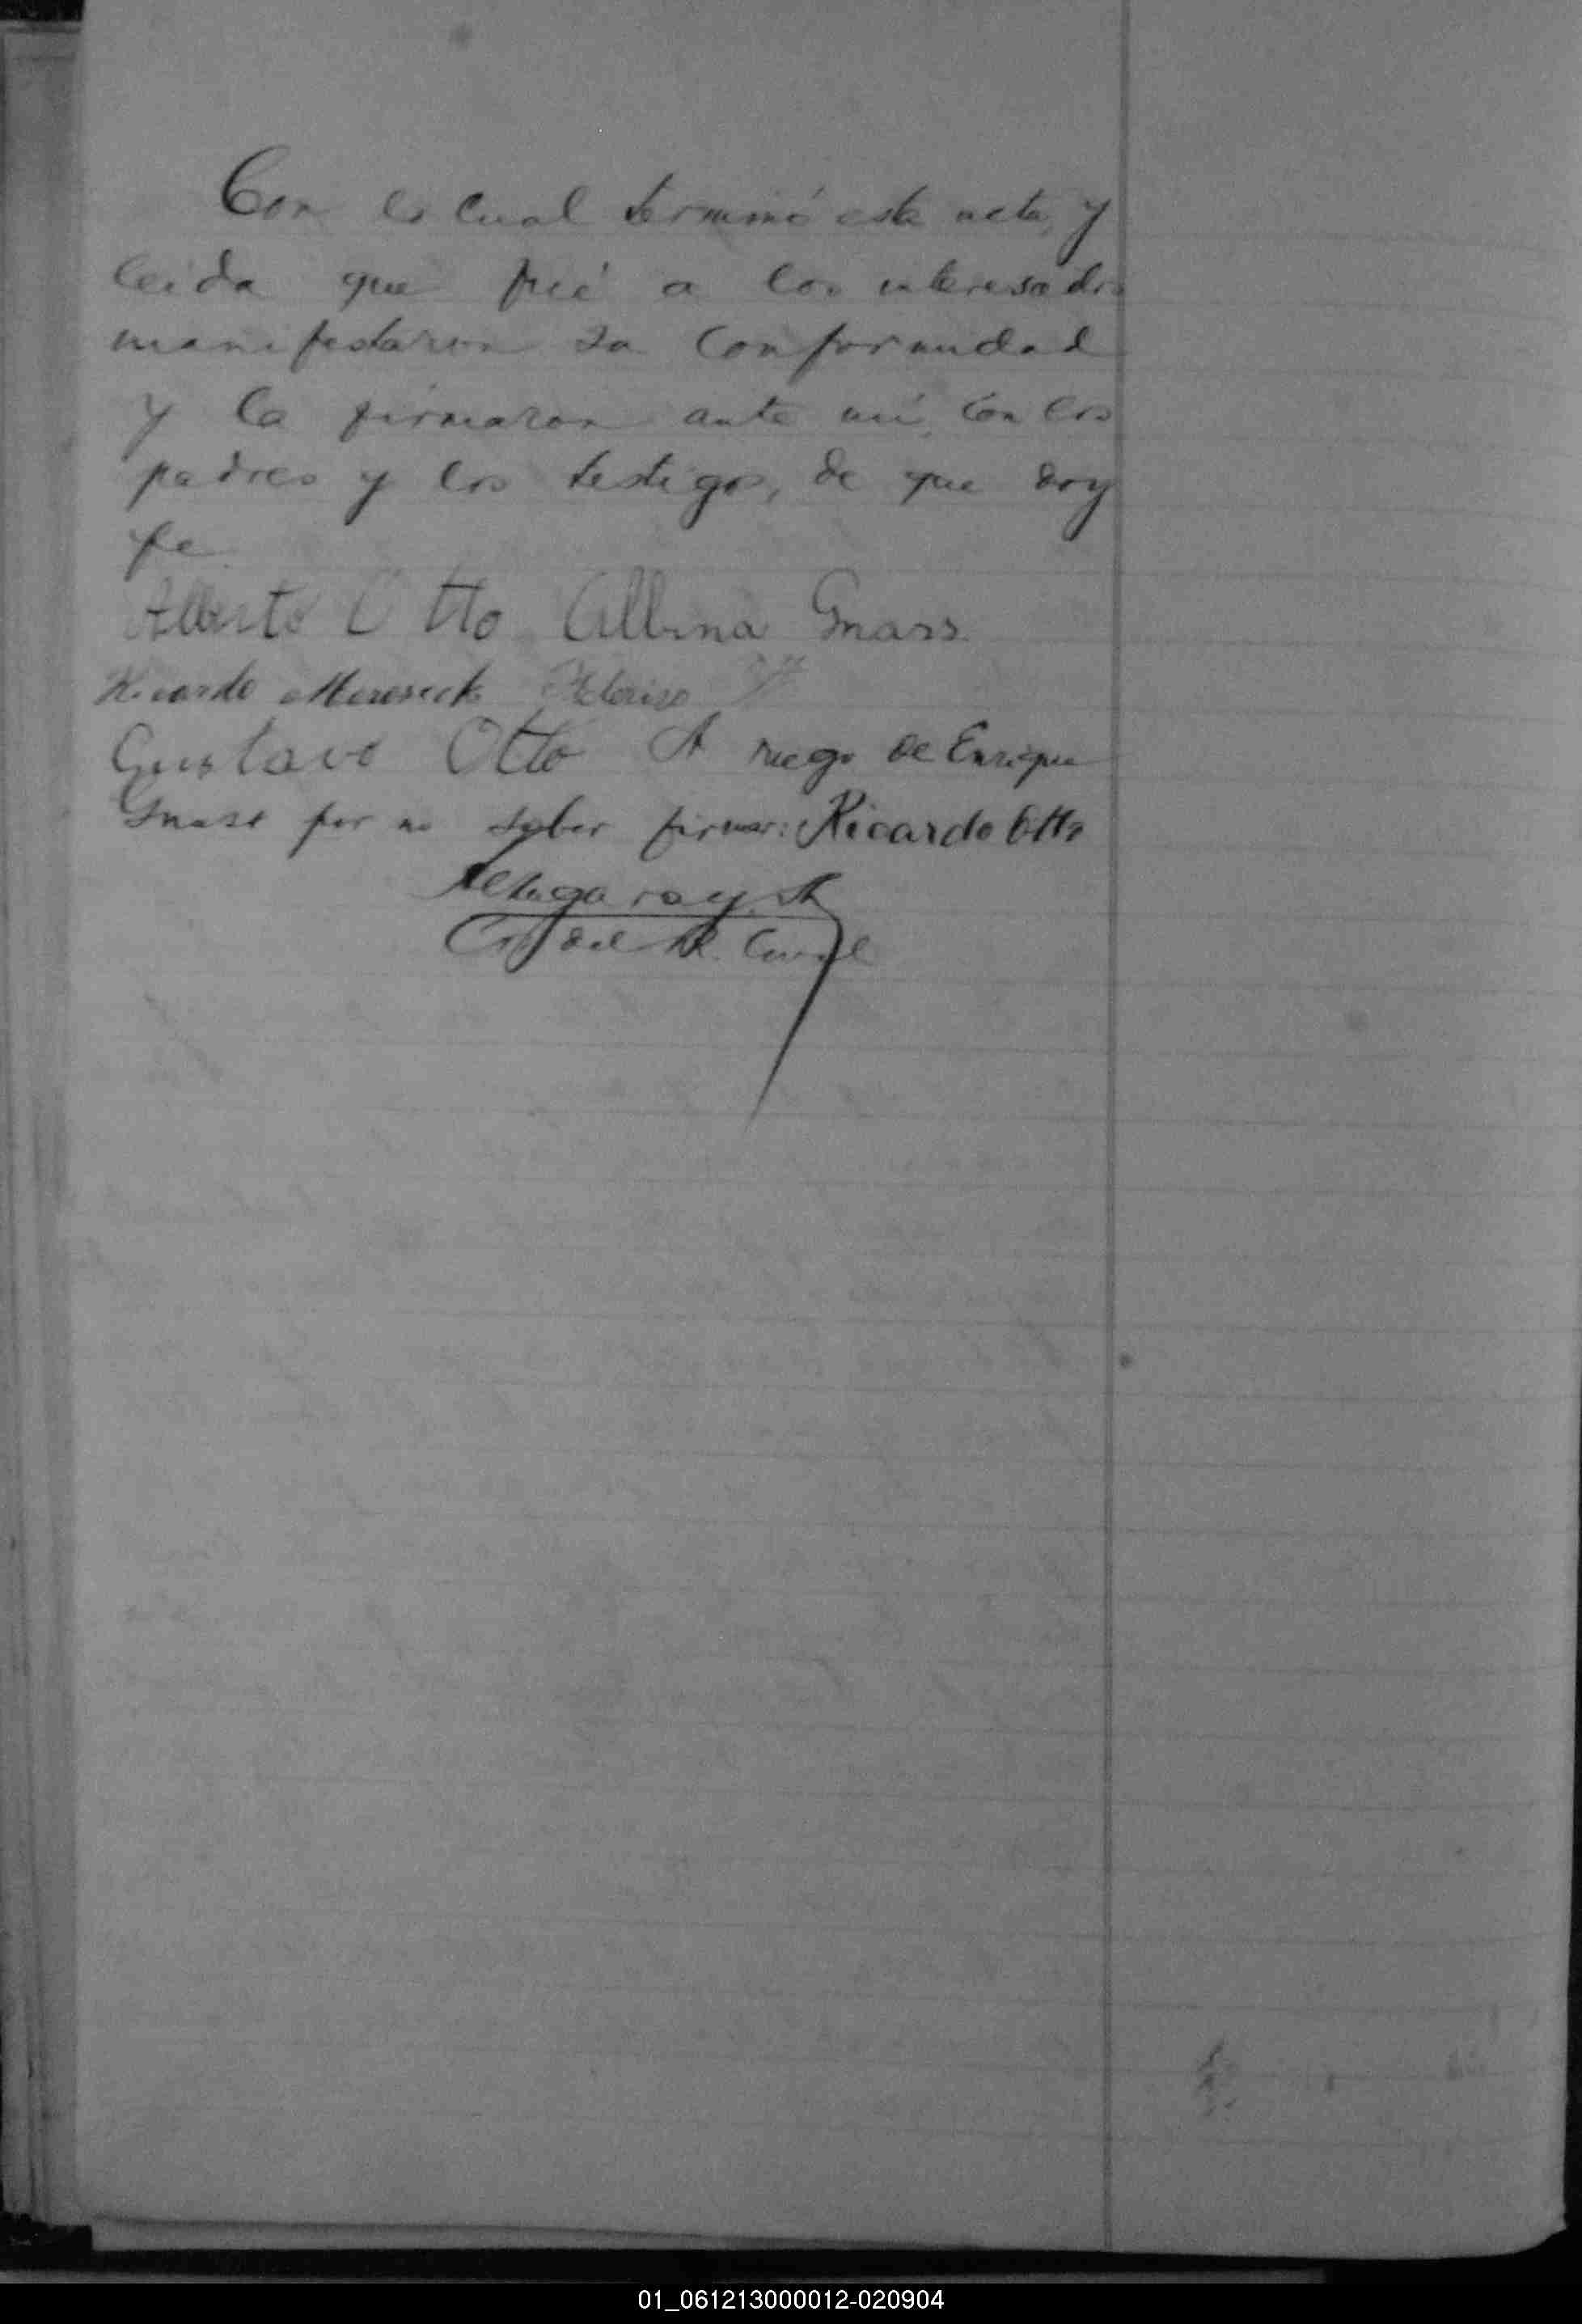 Con lo cual terminó este acta, y
leida que fué a los interesados
manifestaron su conformidad
y la firmaron ante mí, con los
padres y los testigos, de que doy
fe
Alberto Otto Albina Gnass
Ricardo Federico
Gustavo Otto A ruego de Enrique
Gnass por no saber firmar: Ricardo Otto
del R. Civil
01_061213000012-020904